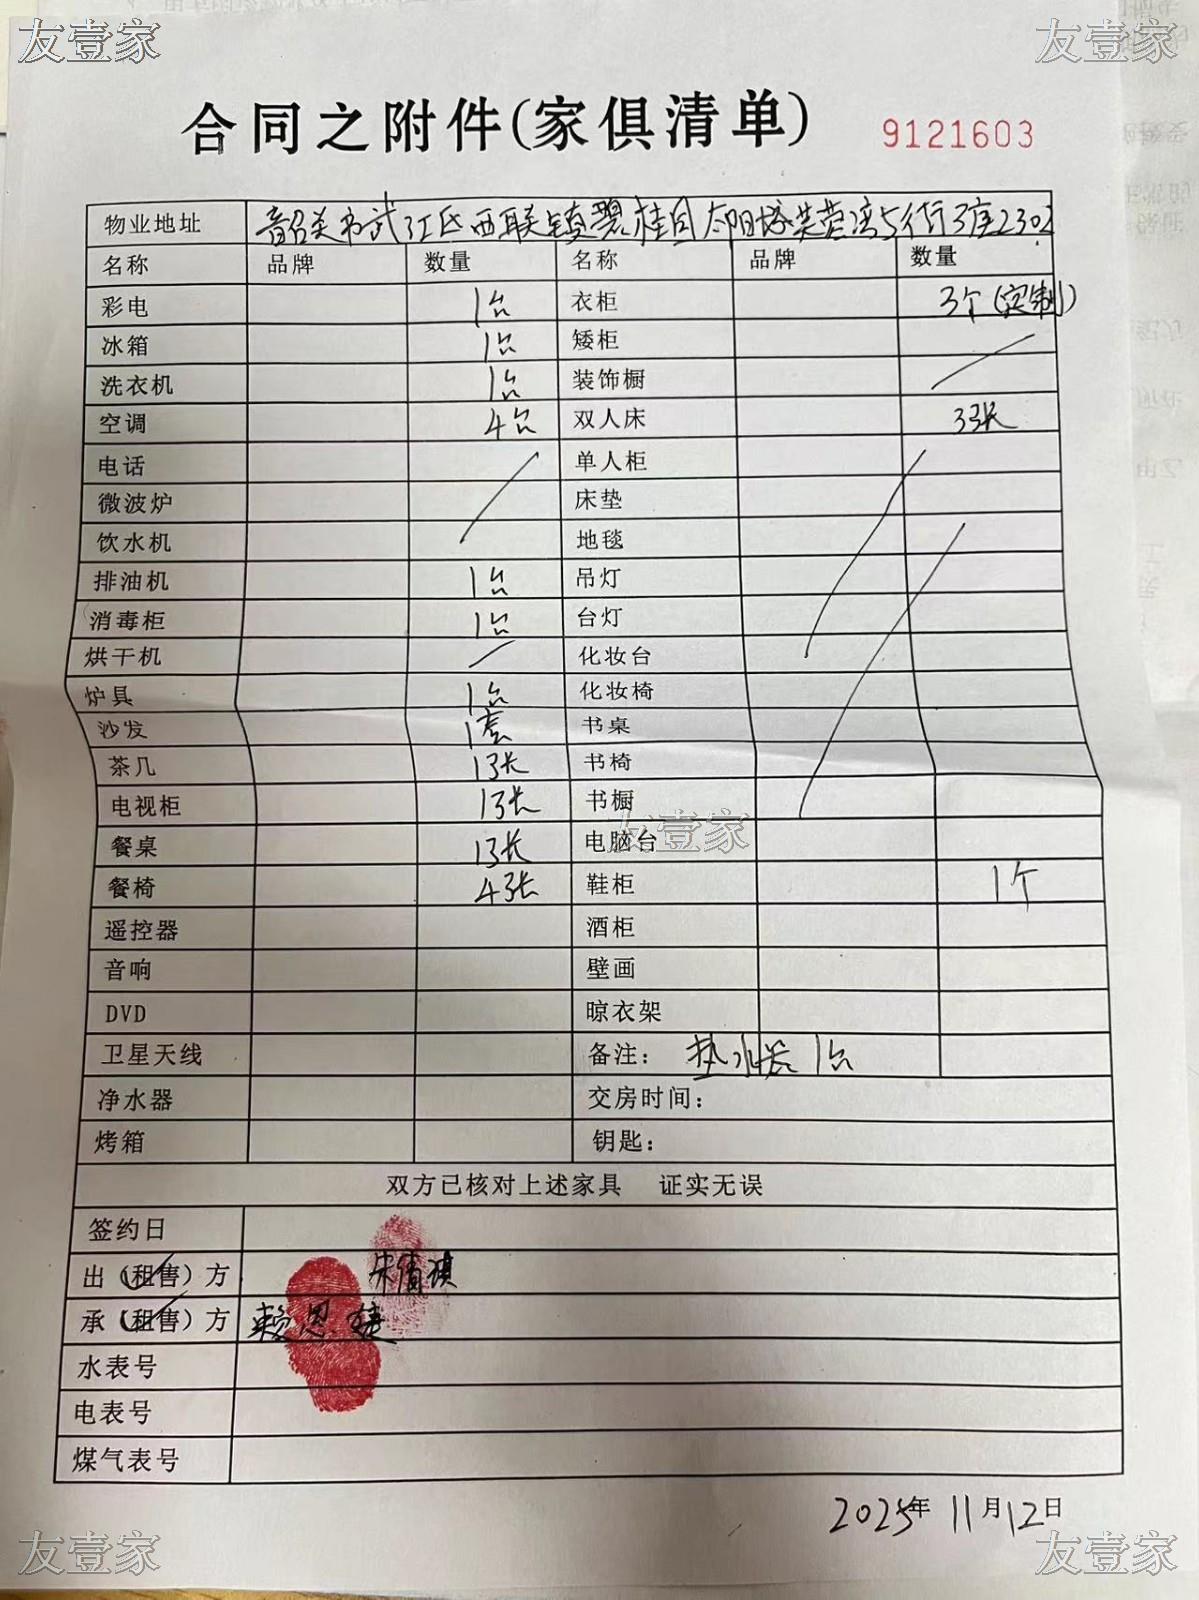 友壹家 友壹家
合同之附件(家俱清单) 9121603
物业地址 韶关市武江区西联镇碧桂园太阳城芙蓉湾5街3座2302
名称 品牌 数量 名称 品牌 数量
彩电 1台 衣柜 3个(定制)
冰箱 1台 矮柜
洗衣机 1台 装饰橱
空调 4台 双人床 3张
电话 单人柜
微波炉 床垫
饮水机 地毯
排油机 1台 吊灯
消毒柜 1台 台灯
烘干机 化妆台
炉具 1台 化妆椅
沙发 1套 书桌
茶几 1张 书椅
电视柜 1张 书橱
友壹家
餐桌 1张 电脑台
餐椅 4张 鞋柜 1个
遥控器 酒柜
音响 壁画
DVD 晾衣架
卫星天线 备注: 热水器 1台
净水器 交房时间:
烤箱 钥匙:
双方已核对上述家具 证实无误
签约日
出(租售)方 朱倩琪
承(租售)方 赖思婕
水表号
电表号
煤气表号
2025年 11月12日
友壹家 友壹家